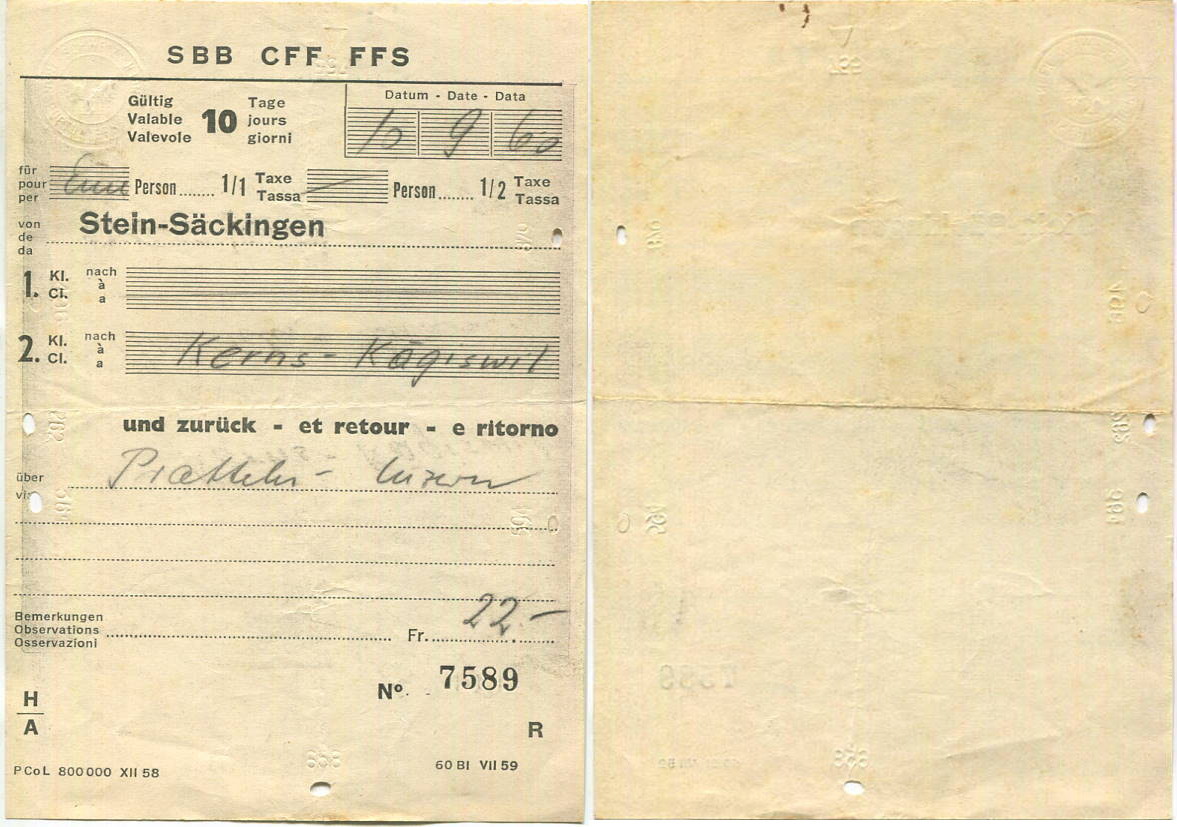 SBB CFF FFS
Gültig
Valable
Valevole
10
Tage
jours
giorni
Datum - Date - Data
10 9 60
für
pour
per
Eine Person........ 1/1 Taxe
Tassa
Person........ 1/2 Taxe
Tassa
von
de
da
Stein-Säckingen
1. Kl.
Cl.
nach
à
a
2. Kl.
Cl.
nach
à
a
Kerns-Kägiswil
und zurück - et retour - e ritorno
über
via
Pratteln - Luzern
Bemerkungen
Observations
Osservazioni
Fr. 22.-
Nº 7589
H
A
R
PCoL 800000 XII 58
60 BI VII 59